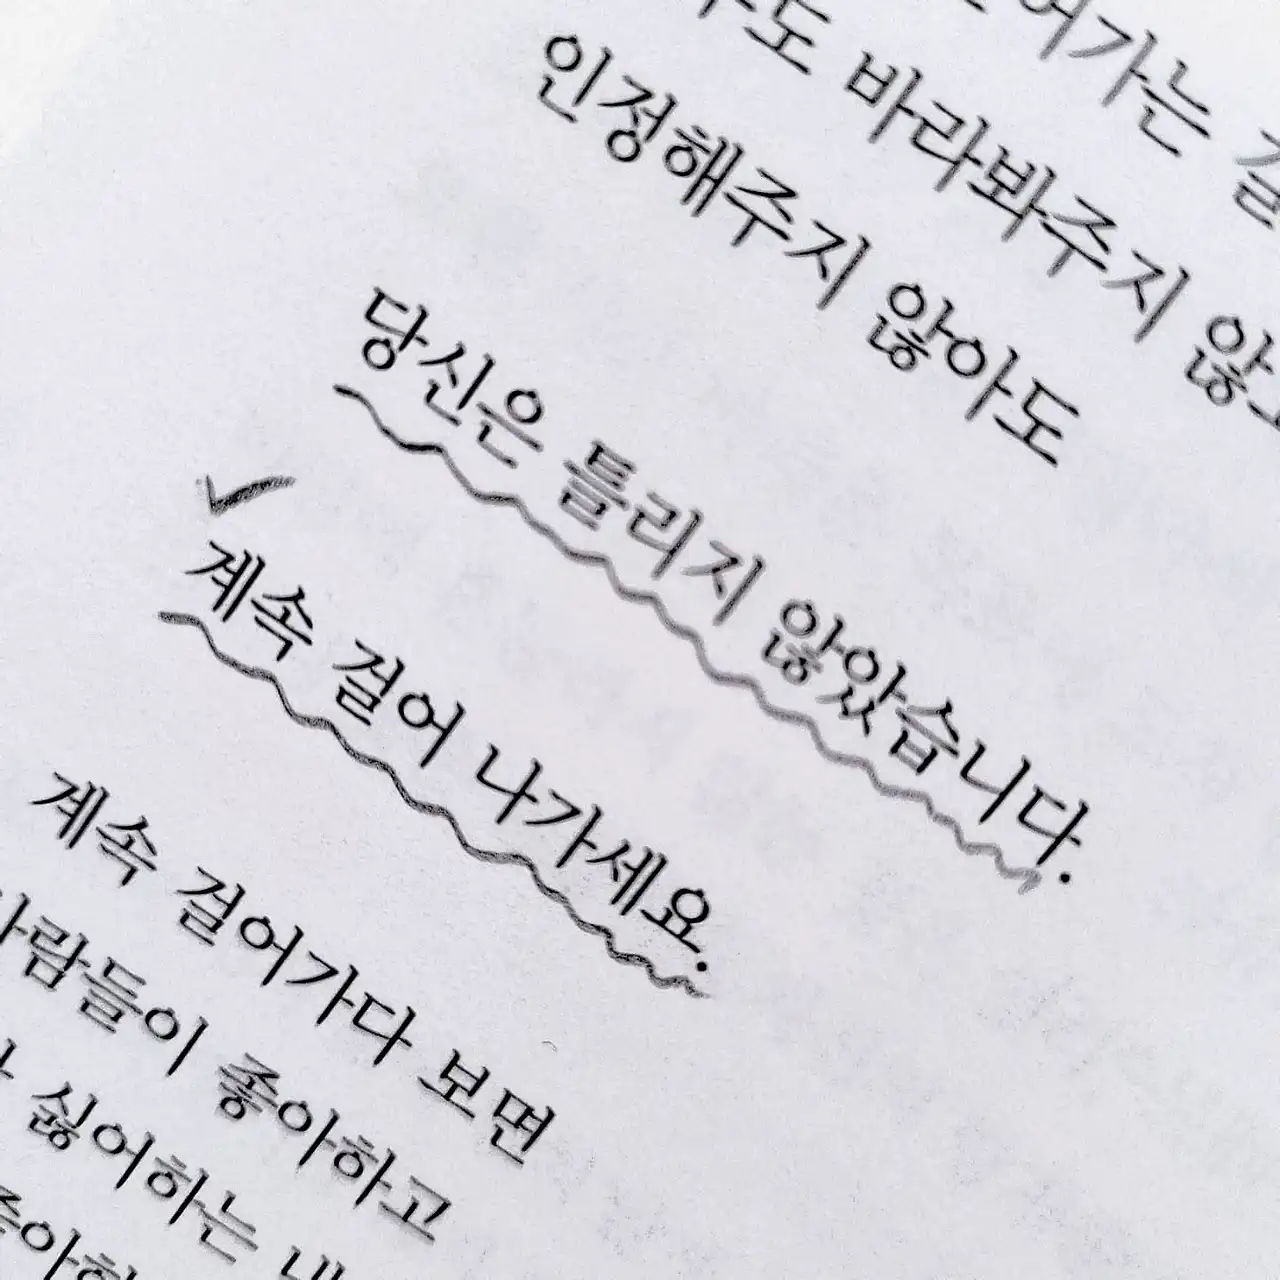 어가는 길
도 바라봐주지 않고
인정해주지 않아도
당신은 틀리지 않았습니다.
계속 걸어 나가세요.
계속 걸어가다 보면
사람들이 좋아하고
싫어하는